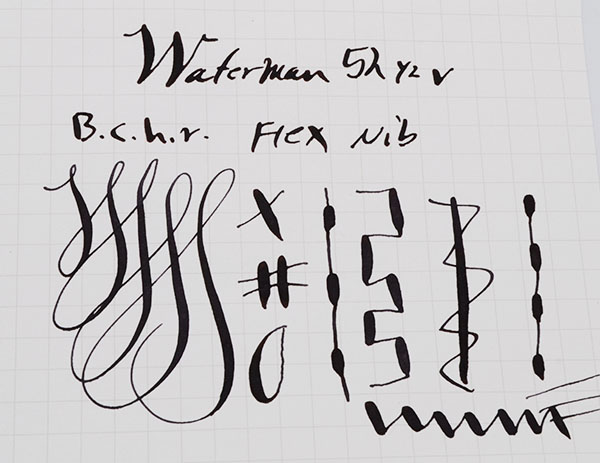 Waterman 52 1/2 V
B.c.h.r. Flex Nib